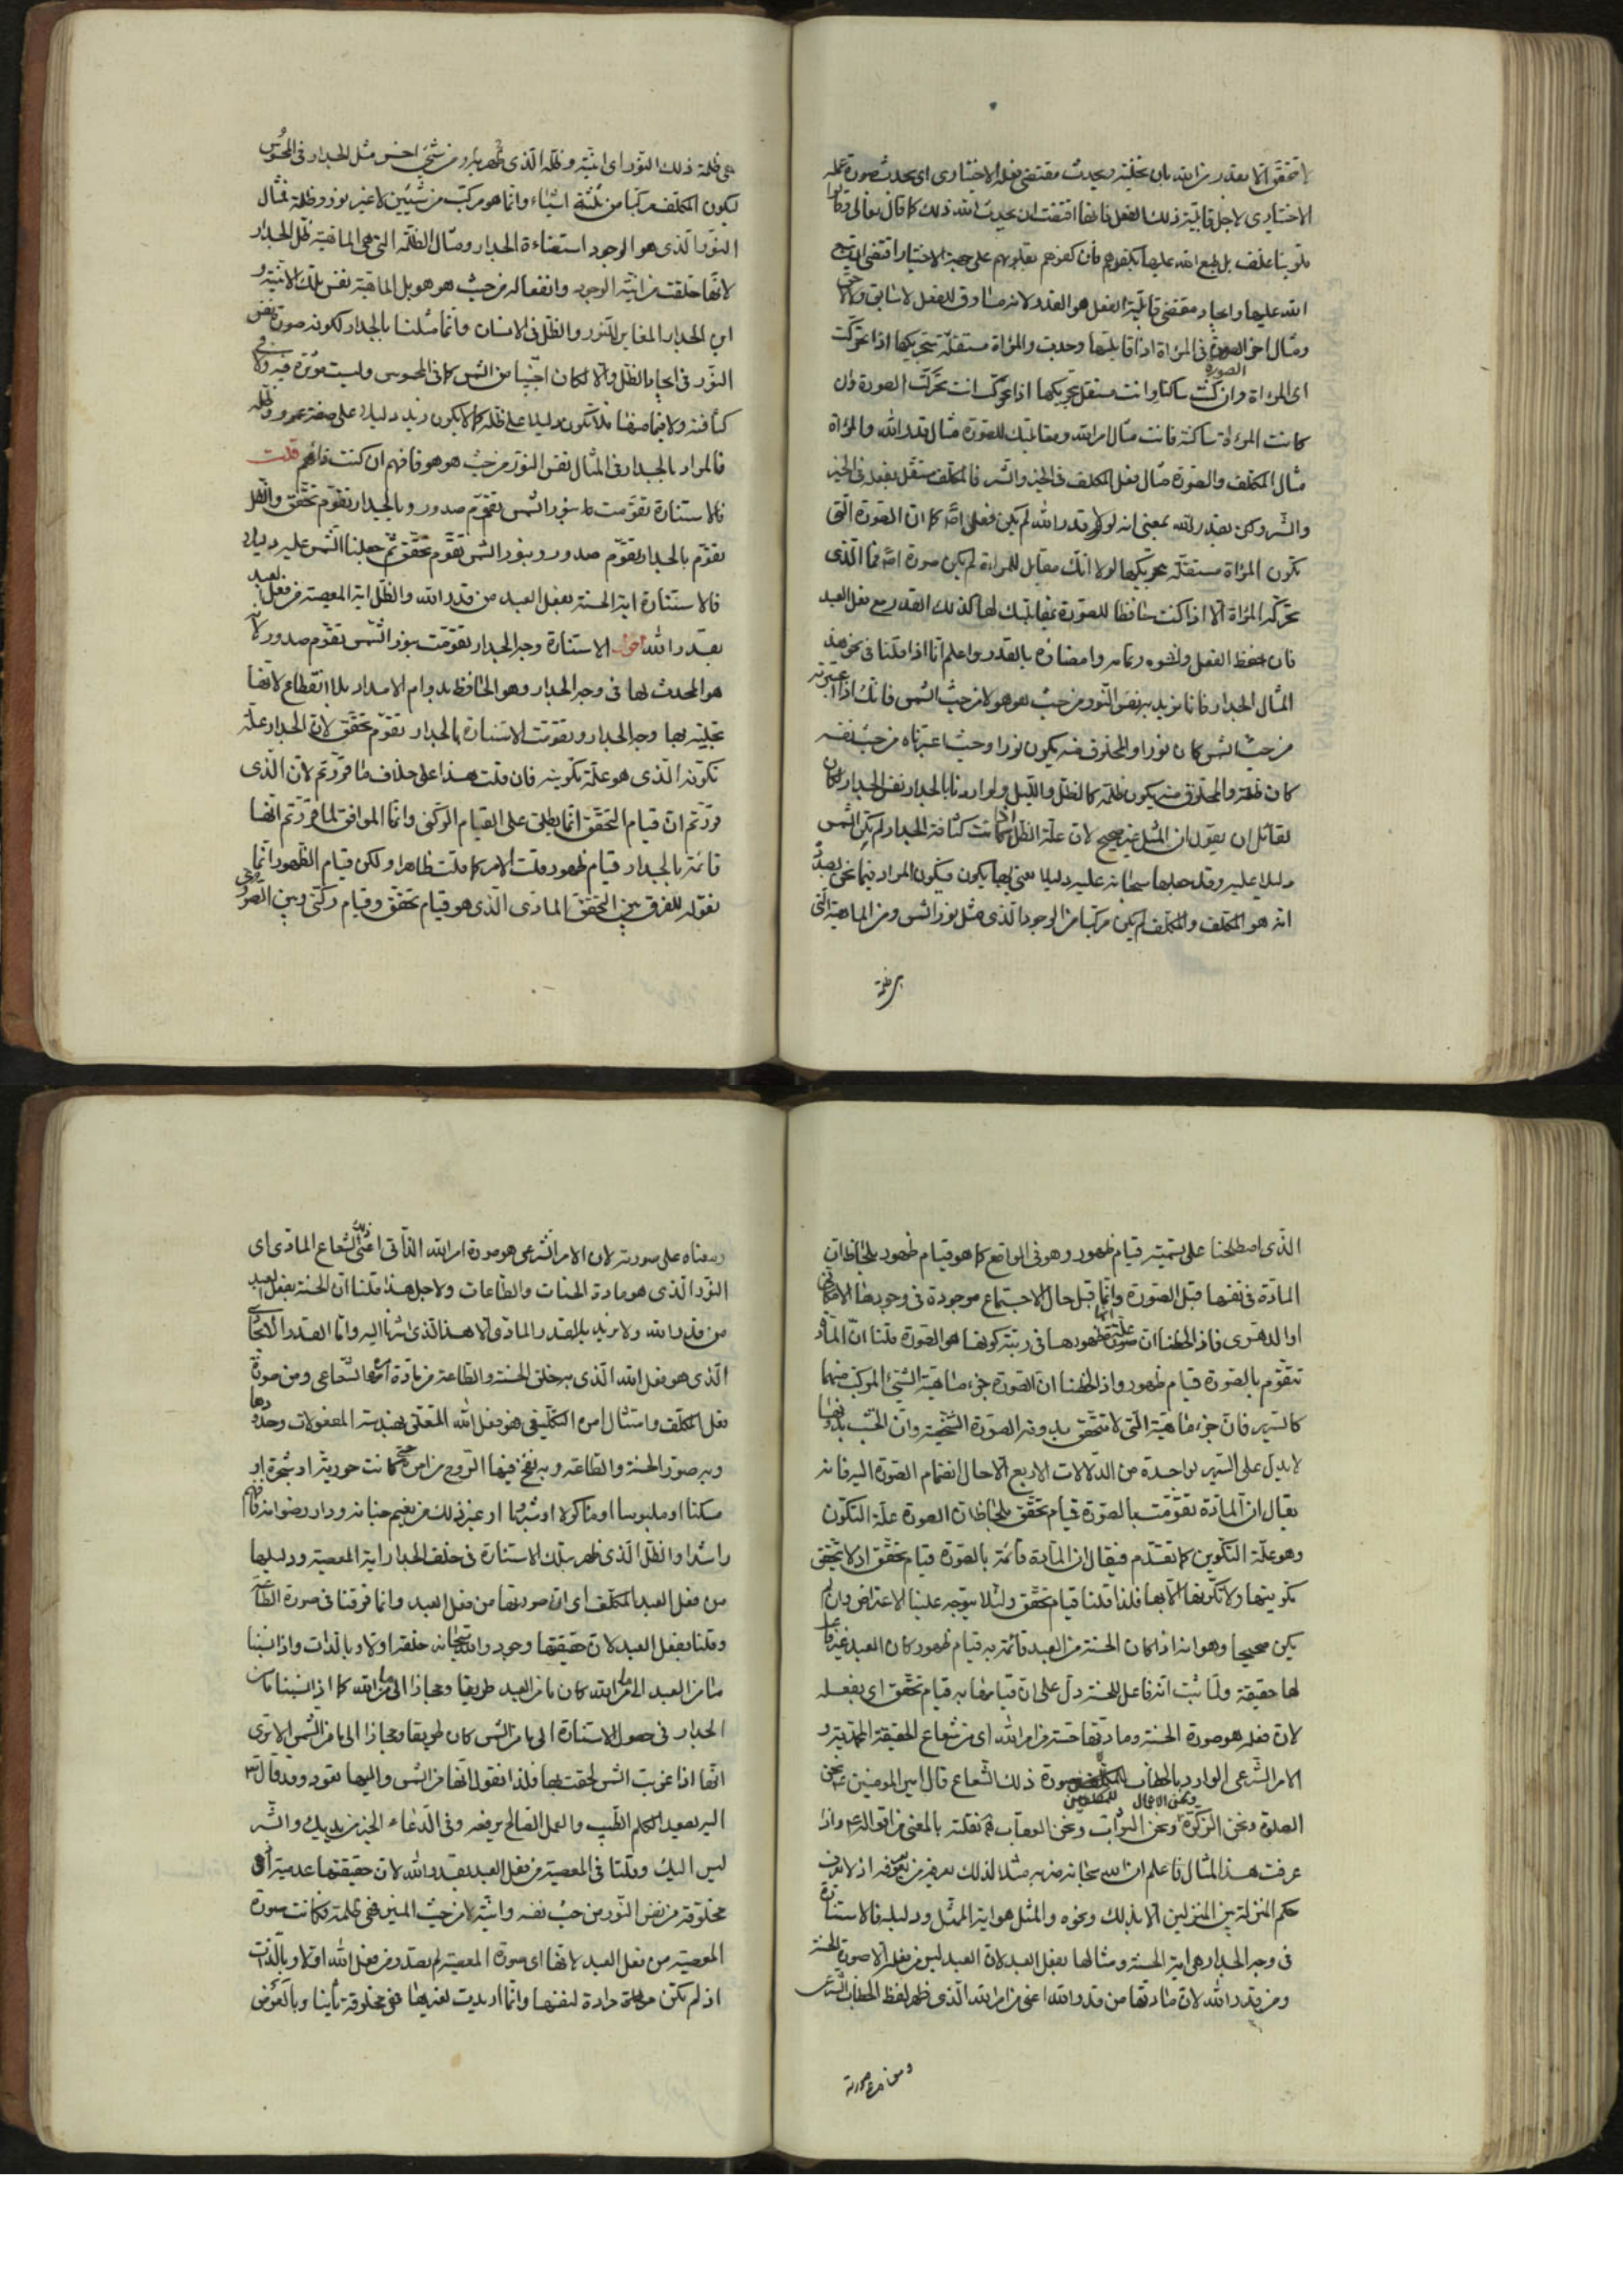 لا تتحقق الا بقدر من الله بان يخليه ويحدث مقتضى فعله الاختيارى اى يحدث صورة عمله
الاختيارى لاجل قابلية ذلك الفعل فانها اقتضت ان يحدث الله ذلك كما قال تعالى وقالوا
قلوبنا غلف بل طبع الله عليها بكفرهم فان كفرهم بقلوبهم على جهة الاختيار اقتضى ان يطبع
الله عليها وايجاد مقتضى قابلية الفعل هو القدر لانه مساوق للفعل لا سابق ولا لاحق
ومثال اخر الصورة فى المرآة اذا قابلتها وجدت والمرآة مستقلة بتحريكها اذا تحركت
اى المرآة وان كنت ساكنا وانت مستقل بتحريكها اذا تحركت انت تحركت الصورة وان
كانت المرآة ساكنة فانت مثال امر الله ومقابلتك للصورة مثال قدر الله والمرآة
مثال المكلف والصورة مثال فعل المكلف فى الخير والشر فالمكلف مستقل بفعله فى الخير
والشر ولكن بقدر الله بمعنى انه لولا قدر الله لم يكن فعل اصلا كما ان الصورة التى
تكون المرآة مستقلة بتحريكها لولا انك مقابل للمرآة لم يكن صورة اصلا فما الذى
تحركه المرآة الا اذا كنت حافظا للصورة بمقابلتك لها كذلك القدر مع فعل العبد
فان حفظ الفعل ونشوه وتمامه وامضاؤه بالقدر واعلم انا اذا قلنا فى نحو هذا
المثال الجدار فانا نريد به نفس النور من حيث هو هو لا من حيث الشمس فانك اذا اعتبرته
من حيث الشمس كان نورا والمخلوق منه يكون نورا وحيث اعتبرناه من حيث نفسه
كان ظلمة والمخلوق منه يكون ظلمة كالظل والليل ولو اردنا بالجدار نفس الجدار لكان
لقائل ان يقول ان المثل غير صحيح لان علة الظل اذا كانت كثافة الجدار لم يكن الشمس
دليلا عليه وقد جعلها سبحانه عليه دليلا فبها يكون فيكون المراد فيما نحن بصدده
انه هو المكلف والمكلف لم يكن مركبا من الوجود الذى مثل نور الشمس ومن الماهية التى
هى ظلمة
هى ظلمة ذلك النور اى انيته وظله الذى ظهر به ومن شئ اخر مثل الجدار فى المحسوس
ليكون المكلف مركبا من ثلثة اشياء وانما هو مركب من شيئين لا غير نور وظلمة فمثال
النور الذى هو الوجود استضاءة الجدار ومثال الظلمة التى هى الماهية ظل الجدار
لانها خلقت من انية الوجود وانفعاله من حيث هو هو بل الماهية نفس تلك الانية و
اين الجدار المغاير للنور والظل فى الانسان وانما مثلنا بالجدار لكونه صورة نفس
النور فى ايجاد الظل والا لكان اجنبيا من الشمس كما فى المحسوس وليست مؤثرة فيه ولا فى
كثافته ولا فيما منها فلا تكون دليلا على ظله كما لا يكون زيد دليلا على صفة عمرو وظله
فالمراد بالجدار فى المثال نفس النور من حيث هو هو فافهم ان كنت فافهم قلت
فالاستنارة تقومت بنور الشمس تقوم صدور وبالجدار تقوم تحقق والظل
تقوم بالجدار تقوم صدور وبنور الشمس تقوم تحقق ثم جعلنا الشمس عليه دليلا
فالاستنارة اية الحسنة بفعل العبد من قدر الله والظل اية المعصية من فعل العبد
بقدر الله اقول الاستنارة وجه الجدار تقومت بنور الشمس تقوم صدور لانه
هو المحدث لها فى وجه الجدار وهو الحافظ بدوام الامداد بلا انقطاع لانها
تجليه بها وجه الجدار وتقومت الاستنارة بالجدار تقوم تحقق لان الجدار علة
تكونه الذى هو علة تكوينه فان قلت هذا على خلاف ما قررتم لان الذى
قررتم ان قيام التحقق انما يطلق على القيام الركنى وانما الموافق لما قررتم انها
قائمة بالجدار قيام ظهور قلت الامر كما قلت ظاهرا ولكن قيام الظهور انما
نقوله للفرق بين التحقق المادى الذى هو قيام تحقق وقيام ركنى وبين الصورى
الذى اصطلحنا على تسميته قيام ظهور وهو فى الواقع كما هو قيام ظهور بلحاظ ان
المادة فى نفسها قبل الصورة وانما قبل حال الاجتماع موجودة فى وجودها الامكانى
او الدهرى فاذا لحظنا ان علة ظهورها فى رتبة كونها هو الصورة قلنا ان المادة
تتقوم بالصورة قيام ظهور واذا لحظنا ان الصورة جزء ماهية الشئ المركب منهما
كالسرير فان جزء ماهيته التى لا تتحقق بدونه الصورة الشخصية وان الخشب بدونها
لا يدل على السرير بواحدة من الدلالات الاربع الا حال انضمام الصورة اليه فانه
يقال ان المادة تقومت بالصورة قيام تحقق بلحاظ ان الصورة علة التكون
وهو علة التكوين كما تقدم فيقال ان المادة قائمة بالصورة قيام تحقق اذ لا يتحقق
تكوينها ولا تكونها الا بها فلذا قلنا قيام تحقق ولئلا يتوجه علينا الاعتراض وان لم
يكن صحيحا وهو انه اذا كان الحسنة من العبد قائمة به قيام ظهور كان العبد غير فاعل
لها حقيقة ولما ثبت انه فاعل للحسنة دل على ان قيامها به قيام تحقق اى بفعله
لان فعله هو صورة الحسنة ومادتها حسنة من امر الله اى من شعاع الحقيقة المحمدية و
الامر الشرعى الوارد بالخطاب للمكلفين صورة ذلك الشعاع قال امير المؤمنين ع نحن
الصلوة ونحن الزكوة ونحن الاعمال ونحن الثواب ونحن العقاب نقلته بالمعنى من اقواله ع واذا
عرفت هذا المثال فاعلم ان الله سبحانه ضربه مثلا لذلك يعرفه من يعرفه اذ لا يعرف
حكم المنزلة بين المنزلتين الا بذلك ونحوه والمثل هو اية الممثل ودليله فالاستنارة
فى وجه الجدار هى اية الحسنة ومثالها بفعل العبد لان العبد ليس من فعله الا صورة الحسنة
ومن قدر الله لان مادتها من قدر الله اعنى من امر الله الذى ظهر لفظ الخطاب الشرعى
ومعناه على صورته
ومعناه على صورته لان الامر الشرعى هو صورة امر الله الذاتى اعنى ذلك الشعاع المادى اى
النور الذى هو مادة الحسنات والطاعات ولاجل هذا قلنا ان الحسنة بفعل العبد
من قدر الله ولا نريد بالقدر المادة الا هذا الذى اشرنا اليه وانما القدر الايجادى
الذى هو فعل الله الذى به خلق الحسنة والطاعة من مادة امره الشعاعى ومن صورة
فعل المكلف وامتثال امره التكليفى فهو فعل الله المتعلق بهندسة المفعولات وحدودها
وبه صور الحسنة والطاعة وبه نفخ فيها الروح من امره حتى كانت حورية او شجرة او
مسكنا او ملبوسا او ماكولا او شرابا او غير ذلك من نعيم جنانه ودار رضوانه فافهم
راشدا والظل الذى ظهر بتلك الاستنارة فى خلف الجدار اية المعصية ودليلها
من فعل العبد المكلف اى ان صورتها من فعل العبد وانما فرقنا فى صورة الطاعة
وقلنا بفعل العبد لان حقيقتها وجود والله سبحانه خلقه اولا وبالذات واذا نسبنا
ما من العبد الى ما من الله كان ما من العبد طريقا ومجازا الى ما من الله كما اذا نسبنا ما من
الجدار فى حصول الاستنارة الى ما من الشمس كان طريقا ومجازا الى ما من الشمس الا ترى
انها اذا غربت الشمس لحقت بها فلذا نقول انها من الشمس واليها تعود وقد قال تعالى
اليه يصعد الكلم الطيب والعمل الصالح يرفعه وفى الدعاء الخير فى يديك والشر
ليس اليك وقلنا فى المعصية من فعل العبد بقدر الله لان حقيقتها عدمية اى
مخلوقة من نفس النور من حيث نفسه وانيته لا من حيث المنير فهى ظلمة فكانت صورة
المعصية من فعل العبد لانها اى صورة المعصية لم تصدر من فعل الله اولا وبالذات
اذ لم تكن مرادة لنفسها وانما اريدت لغيرها فهى مخلوقة ثانيا وبالعرض